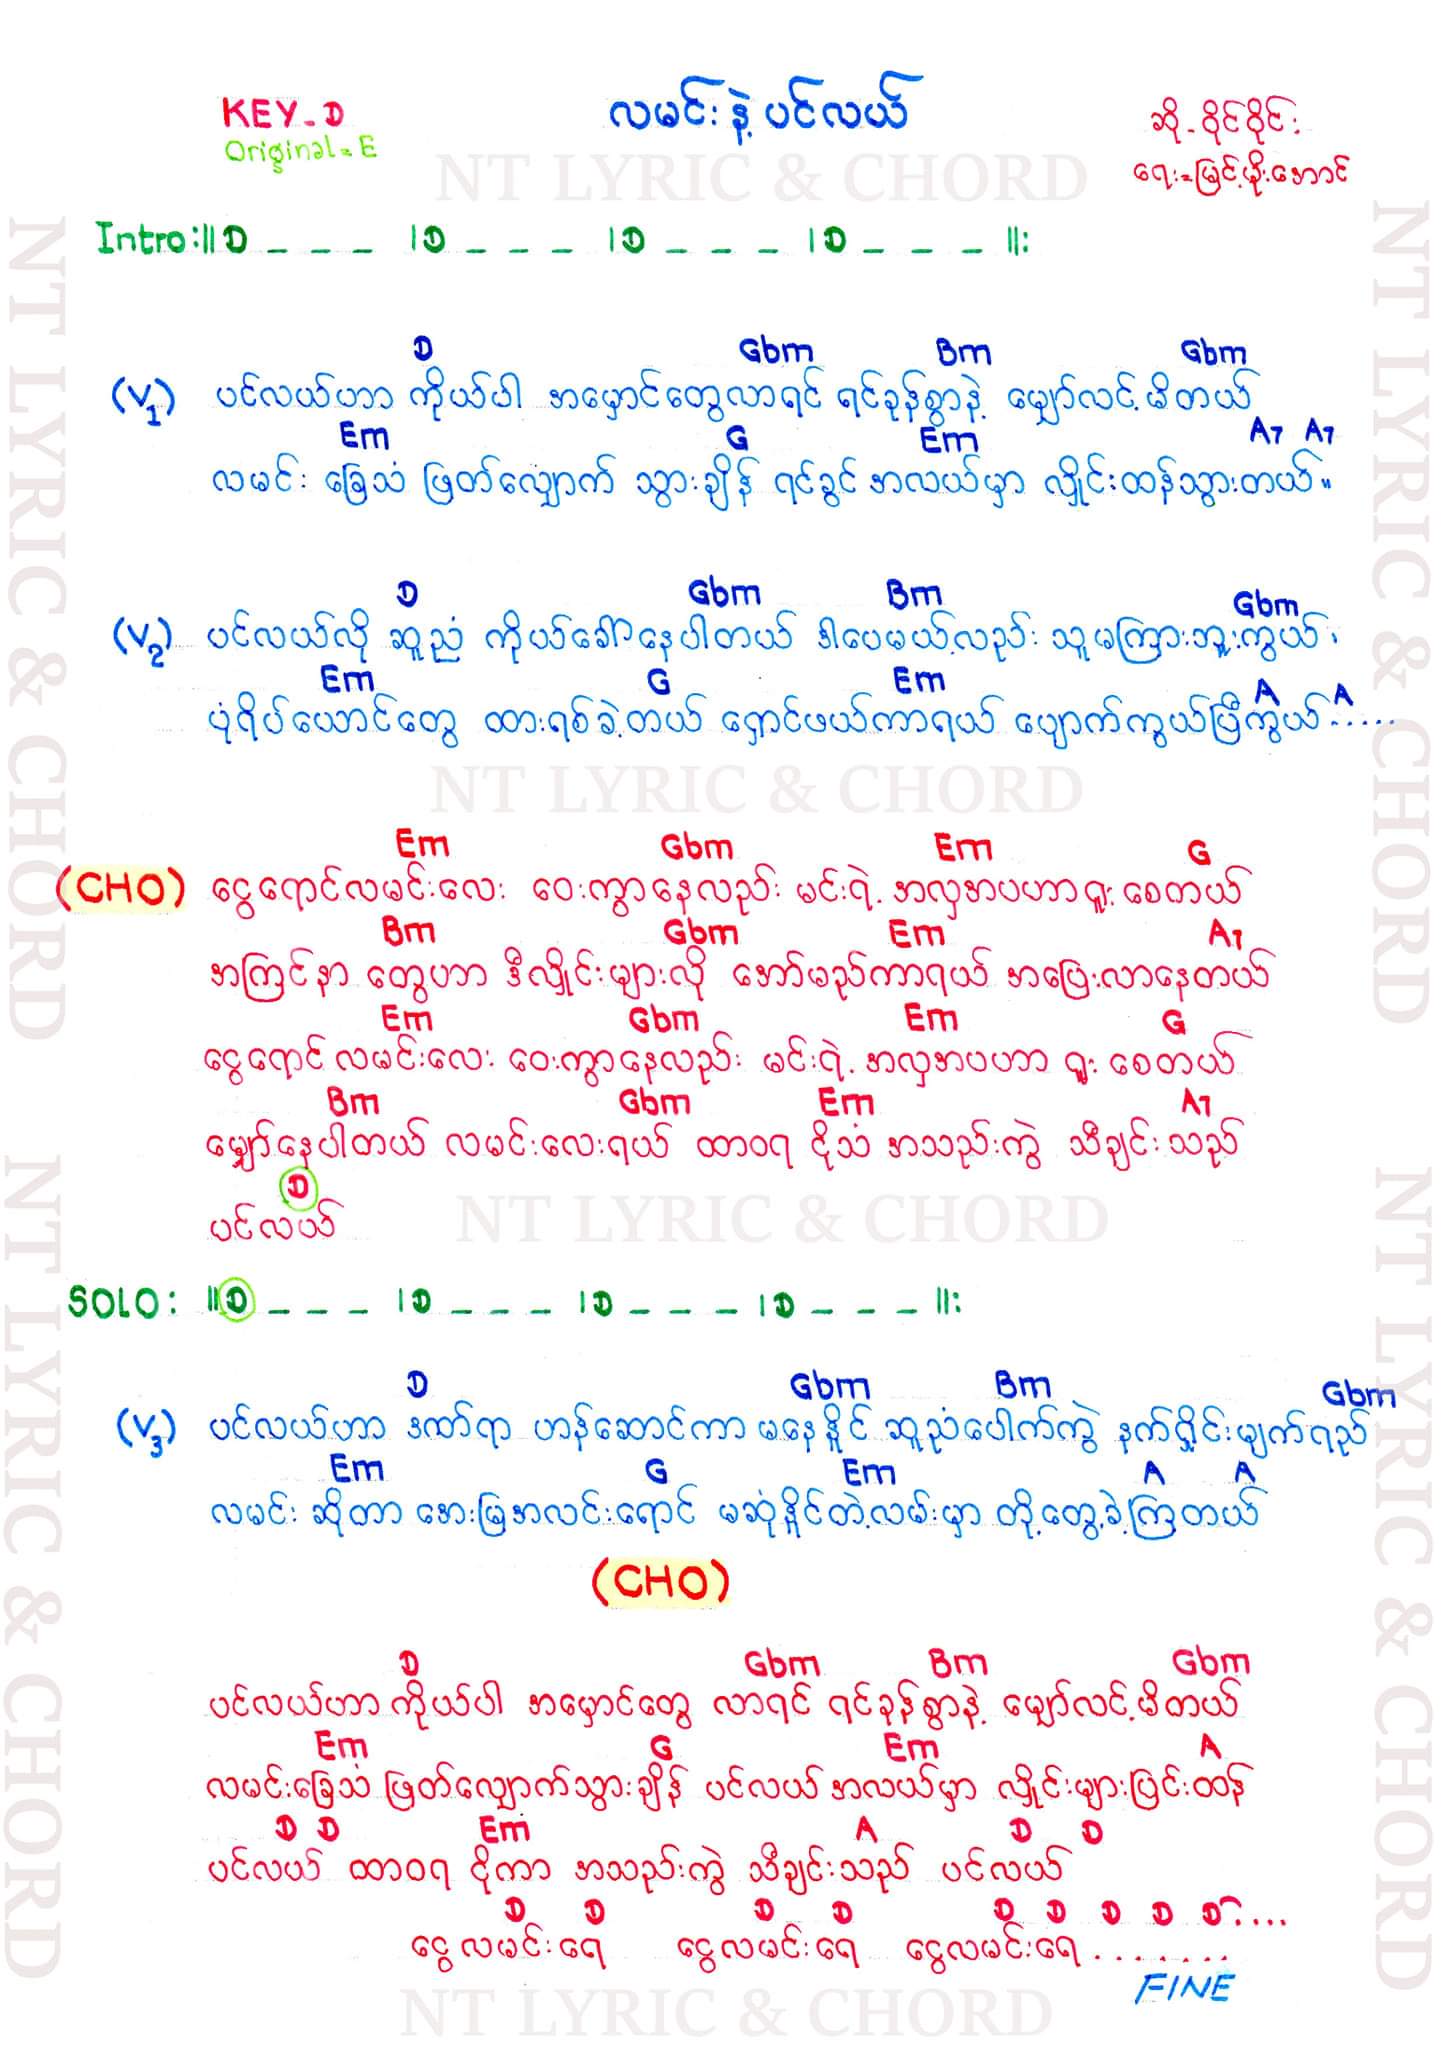 KEY-D
လမင်းနဲ့ ပင်လယ်
ဆို-ဝိုင်ဝိုင်း
Original=E
ရေး=မြင့်မိုးအောင်
NT LYRIC & CHORD
Intro:||D _ _ _ |D _ _ _ |D _ _ _ |D _ _ _ ||:
D Gbm Bm Gbm
(V1) ပင်လယ်ဟာ ကိုယ်ပါ အမှောင်တွေလာရင် ရင်ခုန်စွာနဲ့ မျှော်လင့်မိတယ်
Em G Em A7 A7
လမင်း ခြေသံ ဖြတ်လျှောက် သွားချိန် ရင်ခွင် အလယ်မှာ လှိုင်းထန်သွားတယ်။
D Gbm Bm Gbm
(V2) ပင်လယ်လို ဆူညံ ကိုယ်ခေါ်နေပါတယ် ဒါပေမယ့်လည်း သူမကြားဘူးကွယ်၊
Em G Em A A
ပုံရိပ်ယောင်တွေ ထားရစ်ခဲ့တယ် ရှောင်ဖယ်ကာရယ် ပျောက်ကွယ်ပြီကွယ်.....
NT LYRIC & CHORD
Em Gbm Em G
(CHO) ငွေရောင်လမင်းလေး ဝေးကွာနေလည်း မင်းရဲ့ အလှအပဟာ ရူးစေတယ်
Bm Gbm Em A7
အကြင်နာ တွေဟာ ဒီလှိုင်းများလို အော်မည်ကာရယ် အပြေးလာနေတယ်
Em Gbm Em G
ငွေရောင် လမင်းလေး ဝေးကွာနေလည်း မင်းရဲ့ အလှအပဟာ ရူးစေတယ်
Bm Gbm Em A7
မျှော်နေပါတယ် လမင်းလေးရယ် ထာဝရ ငိုသံ အသည်းကွဲ သီချင်းသည်
D
ပင်လယ်
NT LYRIC & CHORD
SOLO: ||D _ _ _ |D _ _ _ |D _ _ _ |D _ _ _ ||:
D Gbm Bm Gbm
(V3) ပင်လယ်ဟာ ဒဏ်ရာ ဟန်ဆောင်ကာ မနေနိုင် ဆူညံပေါက်ကွဲ နက်ရှိုင်းမျက်ရည်
Em G Em A A
လမင်း ဆိုတာ အေးမြအလင်းရောင် မဆုံနိုင်တဲ့လမ်းမှာ တို့တွေ့ခဲ့ကြတယ်
(CHO)
D Gbm Bm Gbm
ပင်လယ်ဟာ ကိုယ်ပါ အမှောင်တွေ လာရင် ရင်ခုန်စွာနဲ့ မျှော်လင့်မိတယ်
Em G Em A
လမင်းခြေသံ ဖြတ်လျှောက်သွားချိန် ပင်လယ် အလယ်မှာ လှိုင်းများပြင်းထန်
D D Em A D D
ပင်လယ် ထာဝရ ငိုကာ အသည်းကွဲ သီချင်းသည် ပင်လယ်
D D D D D D D D D....
ငွေလမင်းရေ ငွေလမင်းရေ ငွေလမင်းရေ........
FINE
NT LYRIC & CHORD
NT LYRIC & CHORD
NT LYRIC & CHORD
NT LYRIC & CHORD
NT LYRIC & CHORD